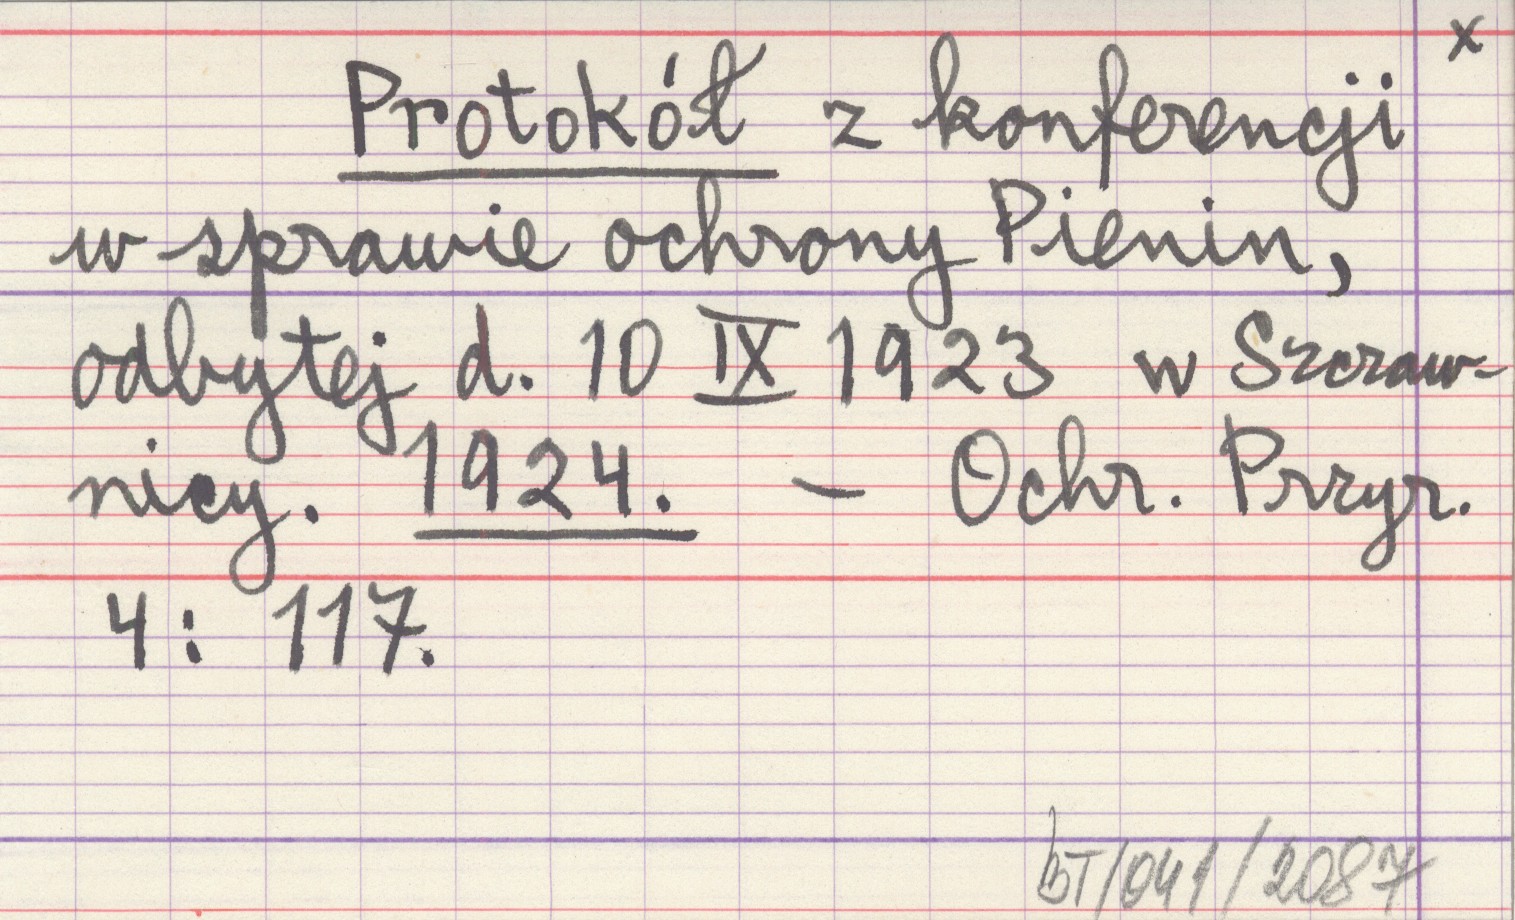 x
Protokół z konferencji
w sprawie ochrony Pienin,
odbytej d. 10 IX 1923 w Szczaw-
nicy. 1924. – Ochr. Przyr.
4: 117.
BT/041/2087